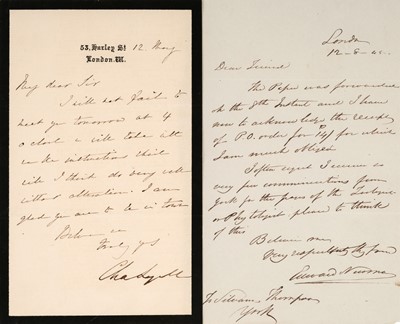 53, Harley St
London. W.
12 May
My dear Sir
I will not fail to
meet you tomorrow at 4
o clock & will take with
me the instructions which
will I think do very well
without alteration. I am
glad you are to be in town
Believe me
Truly yrs
Cha Lyell
London
12-8-
Dear Friend
The Paper was forwarded
on the 8th Instant and I have
now to acknowledge the receipt
of P.O. order for 14/ for which
I am much obliged.
I often regret I receive so
very few communications from
York for the pages of the Zoologist
or Phytologist please to think
of this.
Believe me
Very respectfully thy friend
Edward Newman
To Silvanus Thompson
York